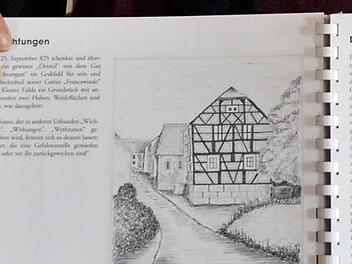 chtungen
25. September 825 schenkte und über-
ein gewisser „Ortmil“ von dem Gut
im Grabfeld für sein und
Seelenheil seiner Gattin „Francswind“
Kloster Fulda ein Grundstück mit an-
enden zwei Huben, Weideflächen und
was dazugehört.
Name, der in anderen Urkunden „Wich-
„Withungen“, „Wythtunen“ ge-
ben wird, könnte sich so deuten lassen:
er, die eine Gefahrenstelle gemieden
oder vor ihr zurückgewichen sind“.
D